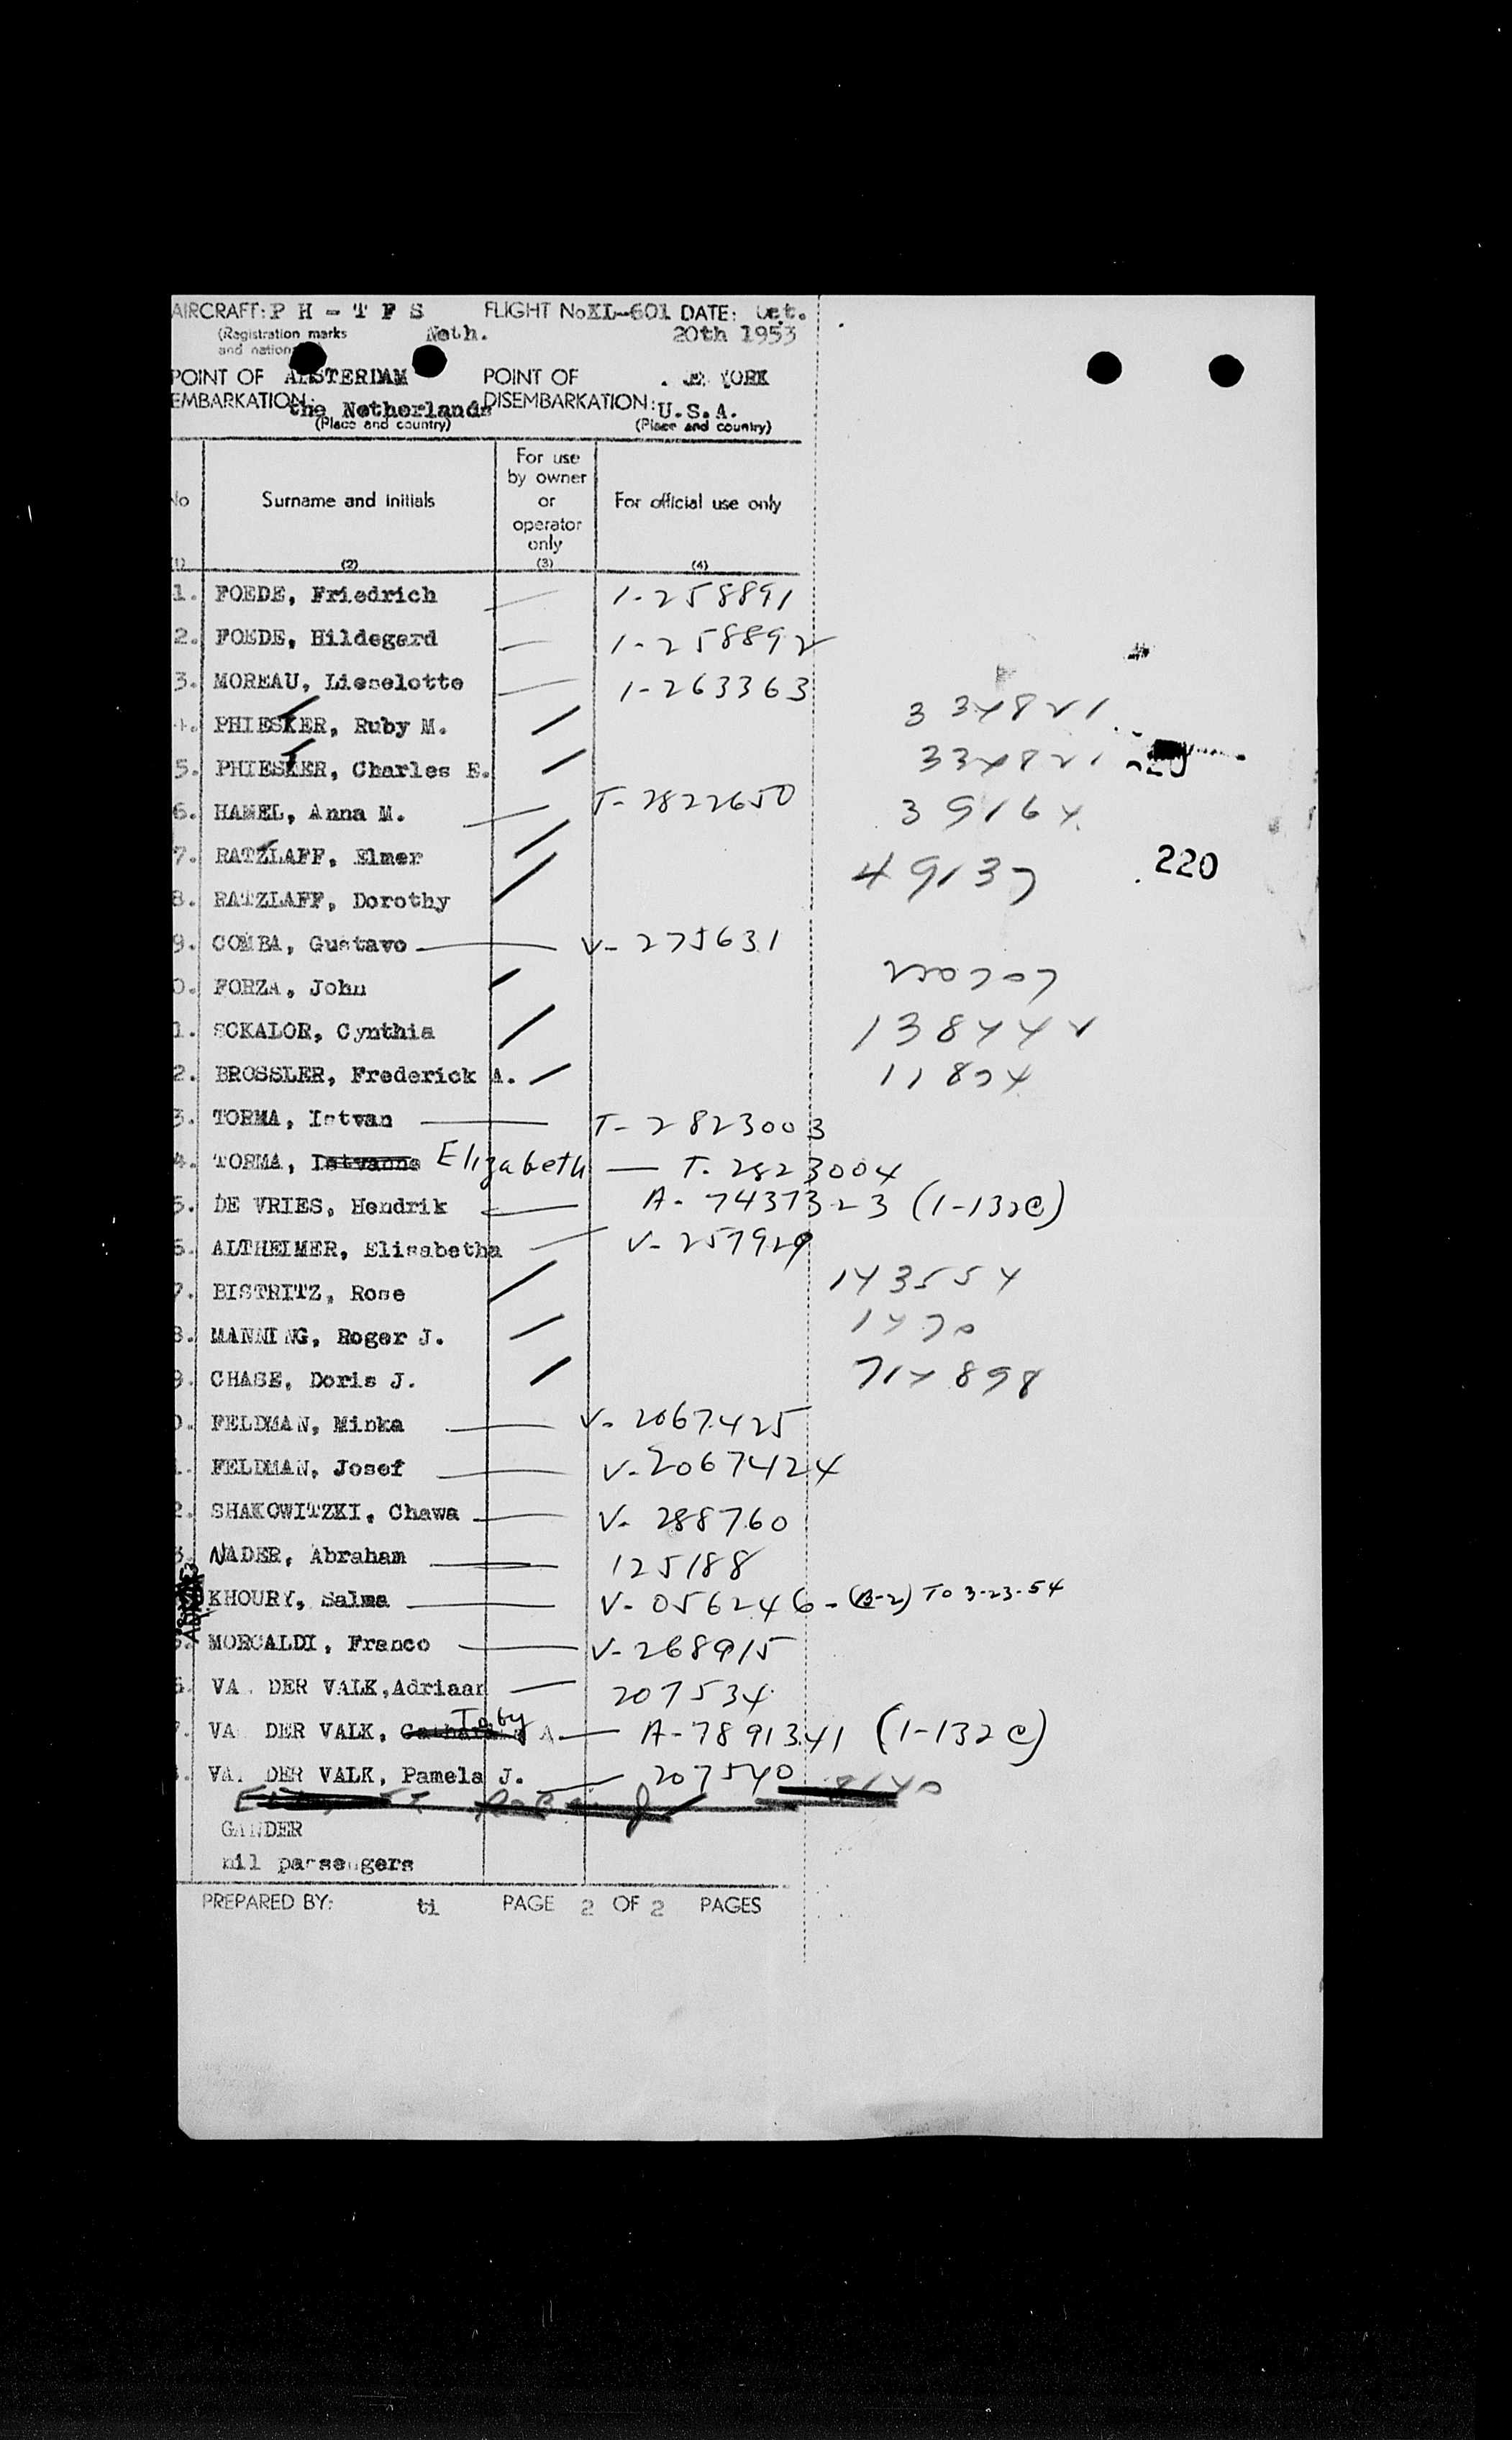 AIRCRAFT: P H - T F S FLIGHT No KL-601 DATE: Oct.
(Registration marks Neth. 20th 1953
and nation
POINT OF AMSTERDAM POINT OF YORK
EMBARKATION: the Netherlands DISEMBARKATION: U.S.A.
(Place and country) (Place and country)
No Surname and initials For use by owner or operator only For official use only
(1) (2) (3) (4)
1. FOEDE, Friedrich — 1-258891
2. FOEDE, Hildegard — 1-258892
3. MOREAU, Lieselotte — 1-263363
4. PHIESTER, Ruby M. / 334821
5. PHIESTER, Charles E. / 334821
6. HAMEL, Anna M. — T-2822650 39164
7. RATZLAFF, Elmer / 49137 220
8. RATZLAFF, Dorothy /
9. COMBA, Gustavo — V-275631
0. FORZA, John / 250707
1. SCKALOR, Cynthia / 138442
2. BROSSLER, Frederick A. / 11824
3. TORMA, Istvan — T-2823003
4. TORMA, Istvanne Elizabeth — T-2823004
5. DE VRIES, Hendrik — A-7437323 (1-132c)
6. ALTHEIMER, Elisabetha — V-257929
7. BISTRITZ, Rose / 143554
8. MANNING, Roger J. / 1470
9. CHASE, Doris J. / 714898
0. FELDMAN, Minka — V-2067425
1. FELDMAN, Josef — V-2067424
2. SHAKOWITZKI, Chawa — V-288760
3. NADER, Abraham — 125188
KHOURY, Salma — V-056246-(B-2) To 3-23-54
5. MORCALDI, Franco — V-268915
6. VA DER VALK, Adriaan — 207534
7. VA DER VALK, Toby A. — A-7891341 (1-132c)
VA DER VALK, Pamela J. — 207540
GANDER
nil passengers
PREPARED BY: ti PAGE 2 OF 2 PAGES